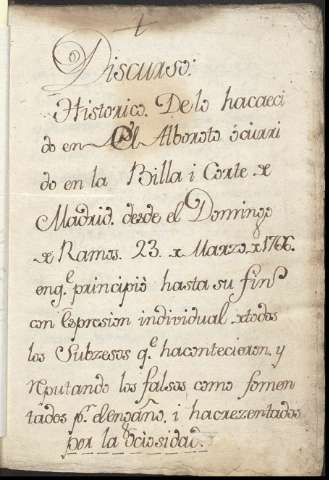 Discurso:
Historico. De lo hacaeci
do en el Alboroto ócurri
do en la Billa i Corte de
Madrid. desde el Domingo
de Ramos. 23. de Marzo. de 1766.
enq.e principiò hasta su fin,
con Espresion individual de todos
los Subzesos q.e hacontecieron, y
reputando los falsos, como fomen
tados p.r el engaño, i hacrezentados
por la Ociosidad.